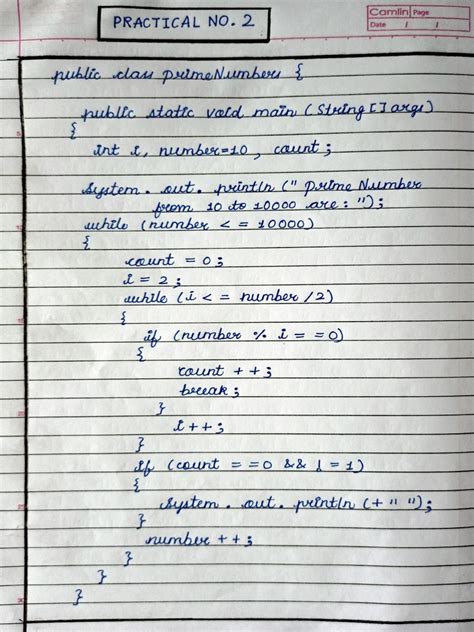 PRACTICAL NO. 2
Camlin Page
Date / /
public class primeNumbers {
public static void main (String [] args)
{
int i, number=10, count;
system. out. println (" prime Number
from 10 to 10000 are : ");
while (number < = 10000)
{
count = 0;
i = 2;
while (i < = number /2)
{
if (number % i = = 0)
{
count + +;
break;
}
i + +;
}
if (count = = 0 && ! = 1)
{
system. out. println (+ " ");
}
number + +;
}
}
}